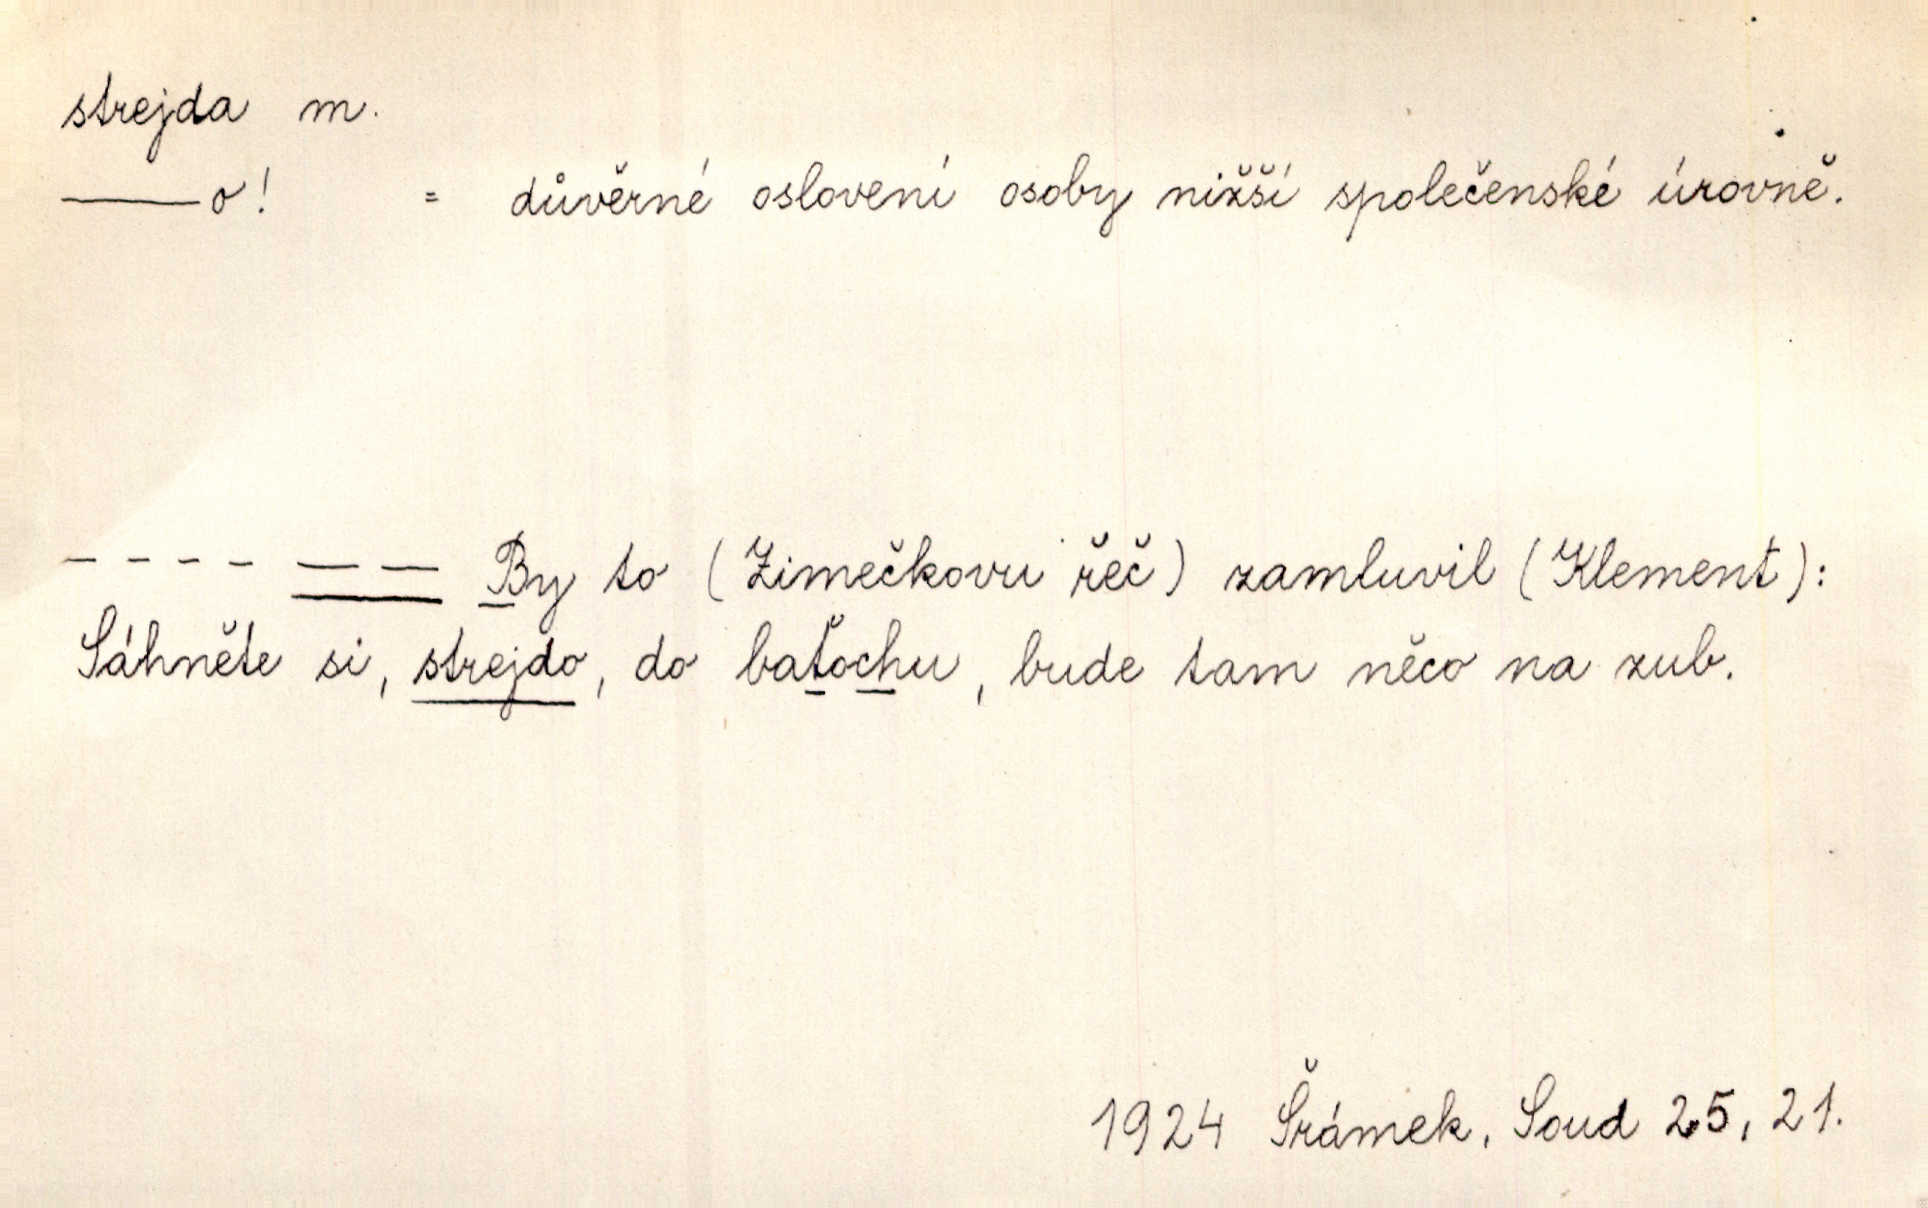 strejda m.
——o! = důvěrné oslovení osoby nižší společenské úrovně.
- - - - — — By to (Zimečkovu řeč) zamluvil (Klement):
Sáhněte si, strejdo, do baťochu, bude tam něco na zub.
1924 Šrámek, Soud 25, 21.